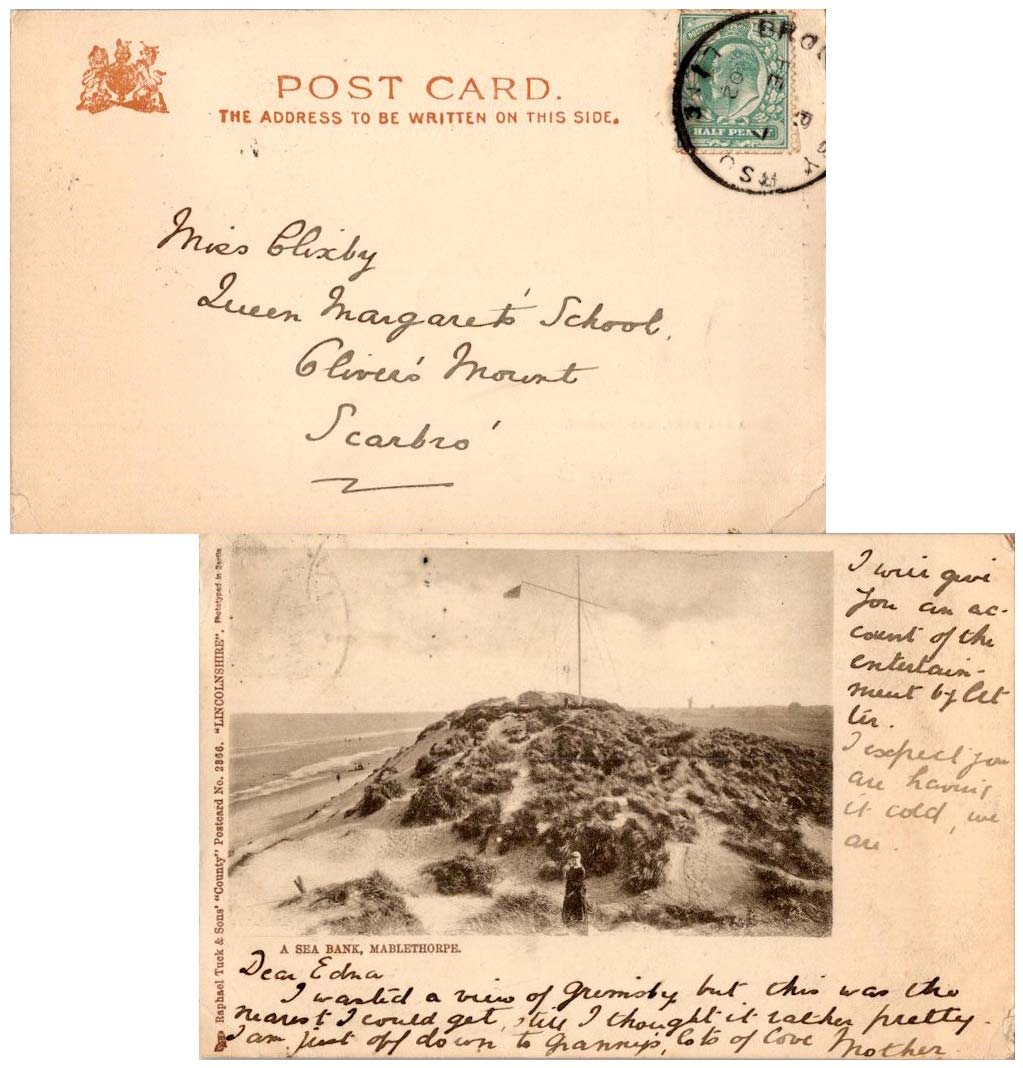 POST CARD.
THE ADDRESS TO BE WRITTEN ON THIS SIDE.
HALF PENNY
Miss Clixby
Queen Margaret's School,
Oliver's Mount
Scarbro'
Raphael Tuck & Sons' "County" Postcard No. 2366. "LINCOLNSHIRE". Phototyped in Berlin
A SEA BANK, MABLETHORPE.
Dear Edna
I wanted a view of Grimsby but this was the
nearest I could get, still I thought it rather pretty.
I am just off down to Grannys, lots of love Mother.
I will give
you an ac-
count of the
entertain-
ment by let
ter.
I expect you
are having
it cold, we
are.